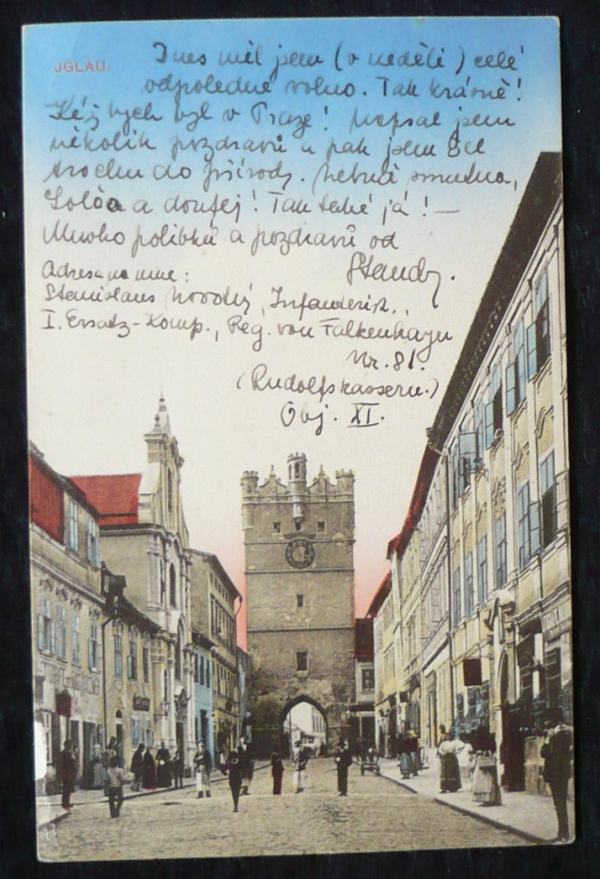 JGLAU.
Dnes měl jsem (v neděli) celé
odpoledne volno. Tak krásně!
Kéž bych byl v Praze! Napsal jsem
několik pozdravů a pak jsem šel
trochu do přírody. Nebuď smutna,
a doufej! Tak také já! —
Mnoho polibků a pozdravů od
Standy.
Adresa na mne:
Stanislaus Novotný, Infanterist,
I. Ersatz-Komp., Reg. von Falkenhayn
Nr. 81.
(Rudolfskasserne.)
Obj. XI.